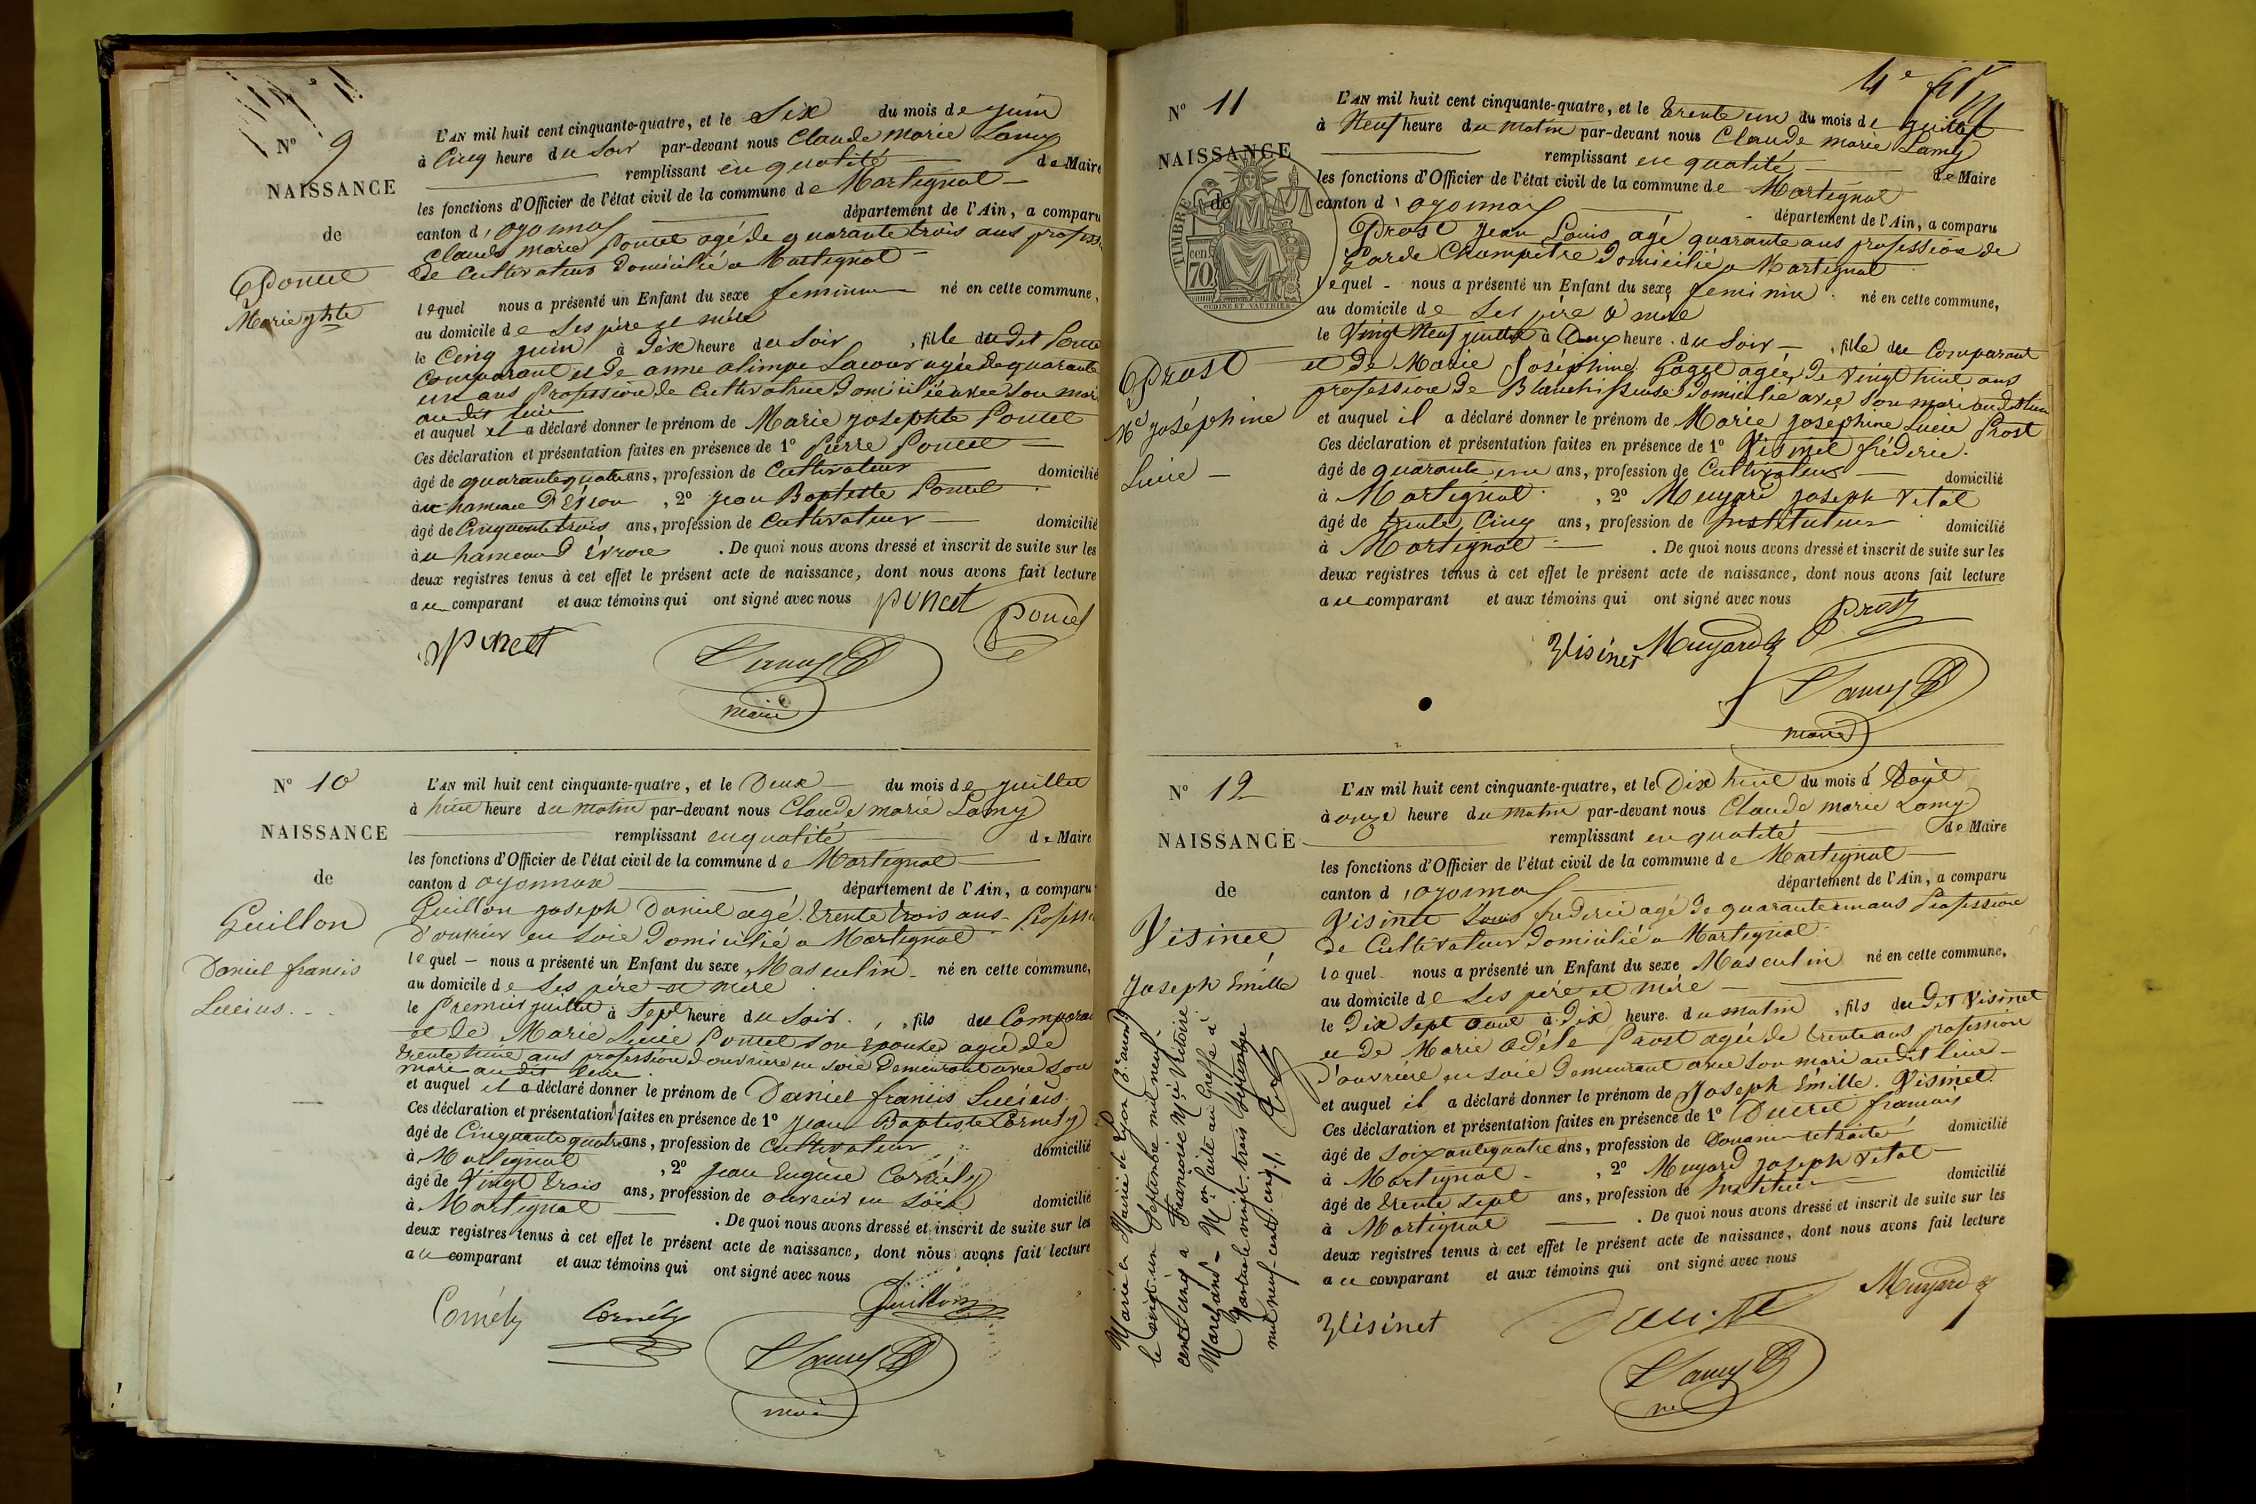 N° 9
NAISSANCE
de
Poncet
Marie jphte
L'AN mil huit cent cinquante-quatre, et le Six du mois de juin
à Cinq heure du Soir par-devant nous Claude Marie Lamy
remplissant en qualité de Maire
les fonctions d'Officier de l'état civil de la commune de Martignat
canton d'oyonnax département de l'Ain, a comparu
Claude Marie Poncet agé de quarante trois ans profess
de Cultivateur domicilié a Martignat
lequel nous a présenté un Enfant du sexe feminin né en cette commune,
au domicile de Ses père et mère
le Cinq juin à dix heure du Soir, fille du dit Poncet
Comparant et de anne olimpe Lacour agée de quarante
un ans Profession de Cultivatrice domiciliée avec Son mari
au dit lieu
et auquel il a déclaré donner le prénom de Marie josephte Poncet
Ces déclaration et présentation faites en présence de 1° Pierre Poncet
âgé de quarante quatre ans, profession de Cultivateur domicilié
au hameau d'Evron, 2° jean Baptiste Poncet
âgé de Cinquante trois ans, profession de Cultivateur domicilié
au hameau d'Evron. De quoi nous avons dressé et inscrit de suite sur les
deux registres tenus à cet effet le présent acte de naissance, dont nous avons fait lecture
au comparant et aux témoins qui ont signé avec nous
Poncet Poncet
Poncet Lamy
maire
N° 10
NAISSANCE
de
Guillon
Daniel francis
Lucius
L'AN mil huit cent cinquante-quatre, et le Deux du mois de juillet
à huit heure du matin par-devant nous Claude marie Lamy
remplissant en qualité de Maire
les fonctions d'Officier de l'état civil de la commune de Martignat
canton d oyonnax département de l'Ain, a comparu
Guillon joseph Daniel agé trente trois ans Profession
d'ouvrier en Soie domicilié a Martignat
lequel nous a présenté un Enfant du sexe Masculin né en cette commune,
au domicile de Ses père et mère
le Premier juillet à Sept heure du Soir, fils du Comparant
et de Marie Lucie Poncet Son epouse agée de
trente huit ans profession d'ouvrière en Soie Demeurant avec Son
mari au dit lieu
et auquel il a déclaré donner le prénom de Daniel francis Lucius
Ces déclaration et présentation faites en présence de 1° jean Baptiste Cornély
âgé de Cinquante quatre ans, profession de Cultivateur domicilié
à Martignat, 2° jean Eugène Cornély
âgé de Vingt trois ans, profession de ouvrier en Soie domicilié
à Martignat. De quoi nous avons dressé et inscrit de suite sur les
deux registres tenus à cet effet le présent acte de naissance, dont nous avons fait lecture
au comparant et aux témoins qui ont signé avec nous
Cornély Cornély Guillon
Lamy
maire
4e
N° 11
NAISSANCE
de
TIMBRE
70 cen.
OUDINE ET VAUTHIER
Prost
Me joséphine
Lucie
L'AN mil huit cent cinquante-quatre, et le trente un du mois de juillet
à Neuf heure du matin par-devant nous Claude marie Lamy
remplissant en qualité de Maire
les fonctions d'Officier de l'état civil de la commune de Martignat
canton d'oyonnax département de l'Ain, a comparu
Prost Jean Louis agé quarante ans profession de
Garde Champêtre domicilié a Martignat
lequel nous a présenté un Enfant du sexe feminin né en cette commune,
au domicile de Ses père & mère
le Vingt Neuf juillet à Deux heure du Soir, fille du Comparant
et de Marie Joséphine agée de Vingt huit ans
profession de Blanchisseuse domiciliée avec Son mari au dit lieu
et auquel il a déclaré donner le prénom de Marie joséphine Lucie Prost
Ces déclaration et présentation faites en présence de 1° Visinet fréderic
âgé de quarante un ans, profession de Cultivateur domicilié
à Martignat, 2° Muyard joseph Vital
âgé de trente Cinq ans, profession de Instituteur domicilié
à Martignat. De quoi nous avons dressé et inscrit de suite sur les
deux registres tenus à cet effet le présent acte de naissance, dont nous avons fait lecture
au comparant et aux témoins qui ont signé avec nous
Visinet Muyard Prost
Lamy
maire
N° 12
NAISSANCE
de
Visinet
Joseph Emille
L'AN mil huit cent cinquante-quatre, et le Dix huit du mois d'Août
à onze heure du matin par-devant nous Claude marie Lamy
remplissant en qualité de Maire
les fonctions d'Officier de l'état civil de la commune de Martignat
canton d'oyonnax département de l'Ain, a comparu
Visinet Louis frederic agé de quarante un ans Profession
de Cultivateur domicilié a Martignat
lequel nous a présenté un Enfant du sexe Masculin né en cette commune,
au domicile de Ses père et mère
le Dix Sept aout à dix heure du matin, fils du dit Visinet
et de Marie Adéle Prost agée de trente ans profession
d'ouvrière en soie Demeurant avec Son mari au dit lieu
et auquel il a déclaré donner le prénom de Joseph Emille Visinet
Ces déclaration et présentation faites en présence de 1° Ducret francois
âgé de Soixante quatre ans, profession de Douanier retraité domicilié
à Martignat, 2° Muyard joseph Vital
âgé de trente Sept ans, profession de Instituteur domicilié
à Martignat. De quoi nous avons dressé et inscrit de suite sur les
deux registres tenus à cet effet le présent acte de naissance, dont nous avons fait lecture
au comparant et aux témoins qui ont signé avec nous
Visinet Muyard
Lamy
Marié en Mairie de Lyon (3e arrondt)
le vingt-un Septembre mil neuf
cent cinq à Françoise Victoire
Marchand - Mon faite au Greffe à
Nantua le vingt-trois Septembre
mil neuf-cent-cinq